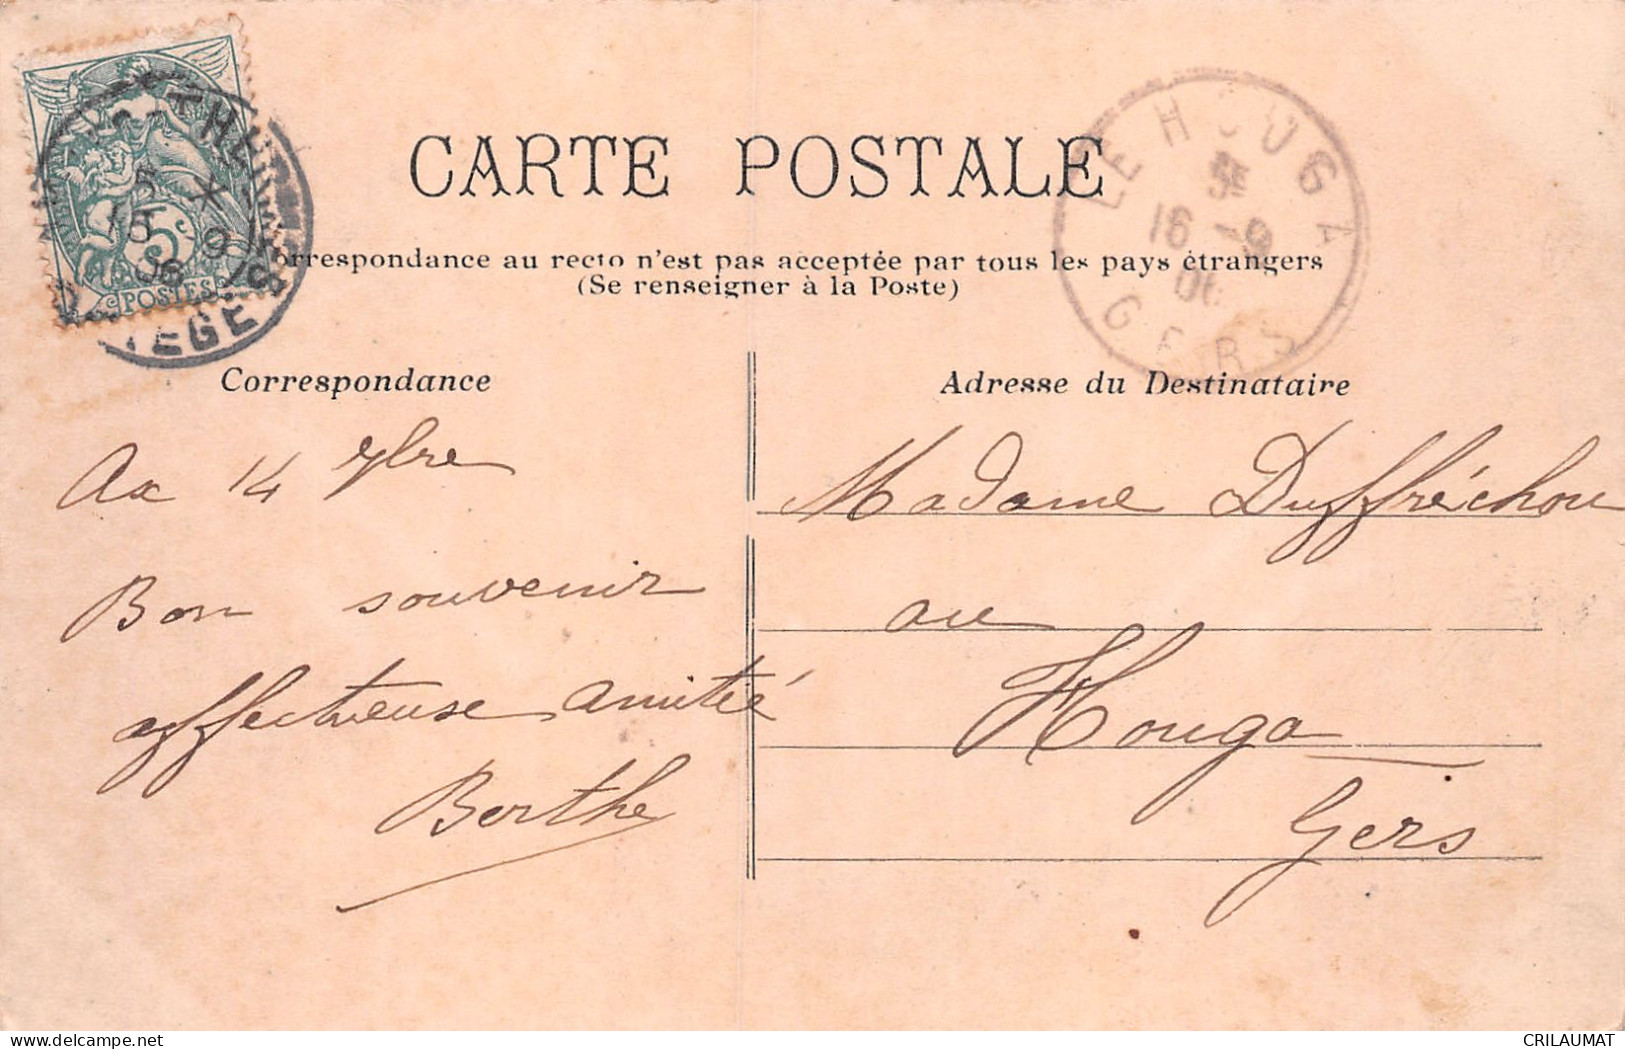 CARTE POSTALE
orrespondance au recto n'est pas acceptée par tous les pays étrangers
(Se renseigner à la Poste)
5c
POSTES
15 9
06
LE HOUGA
16 -9
06
GERS
Correspondance
Ax 14 7bre
Bon souvenir
affectueuse amitié
Berthe
Adresse du Destinataire
Madame Duffréchou
au
Houga
Gers
CRILAUMAT